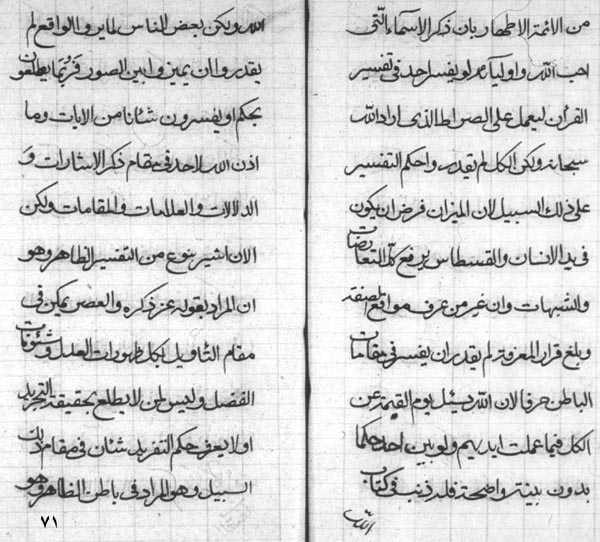 من الائمة الاطهار بان ذكر الاسماء التى
احب الله و اوليائه و لو يفسر احد فى تفسير
القرأن ليعمل على الصراط الذى اراد الله
سبحانه ولكن الكل لم يقدر و احكم التفسير
على ذلك السبيل لان الميزان فرض ان يكون
فى يد الانسان والقسطاس لن يرفع كل التعارضات
والشبهات وان غير من عرف مواقع الصفة
و بلغ قرار المعرفة لم يقدر ان يفسر فى مقامات
الباطن حرفا لان الله يسئل يوم القيمة عن
الكل فيما عملت ايديهم ولو بين احد حكما
بدون بينة واضحة فله ذنب فى كتاب
الله
الله ولكن بعض الناس لما يروا الواقع لم
يقدروا ان يميزوا بين الصور فربما يطلعون
بحكم او يفسرون شأنا من الايات وما
اذن الله لاحد فى مقام ذكر الاشارات و
الدلالات والعلامات والمقامات ولكن
الان اشير بنوع من التفسير الظاهر وهو
ان المراد بقوله عز ذكره والعصر يمكن فى
مقام التأويل لكل ظهورات العدل وشئونات
الفضل وليس لمن لا يطلع بحقيقة التجريد
اولا يعرف حكم التفريد شأن فى مقام ذلك
السبيل وهو المراد فى باطن الظاهر وهو
٧١